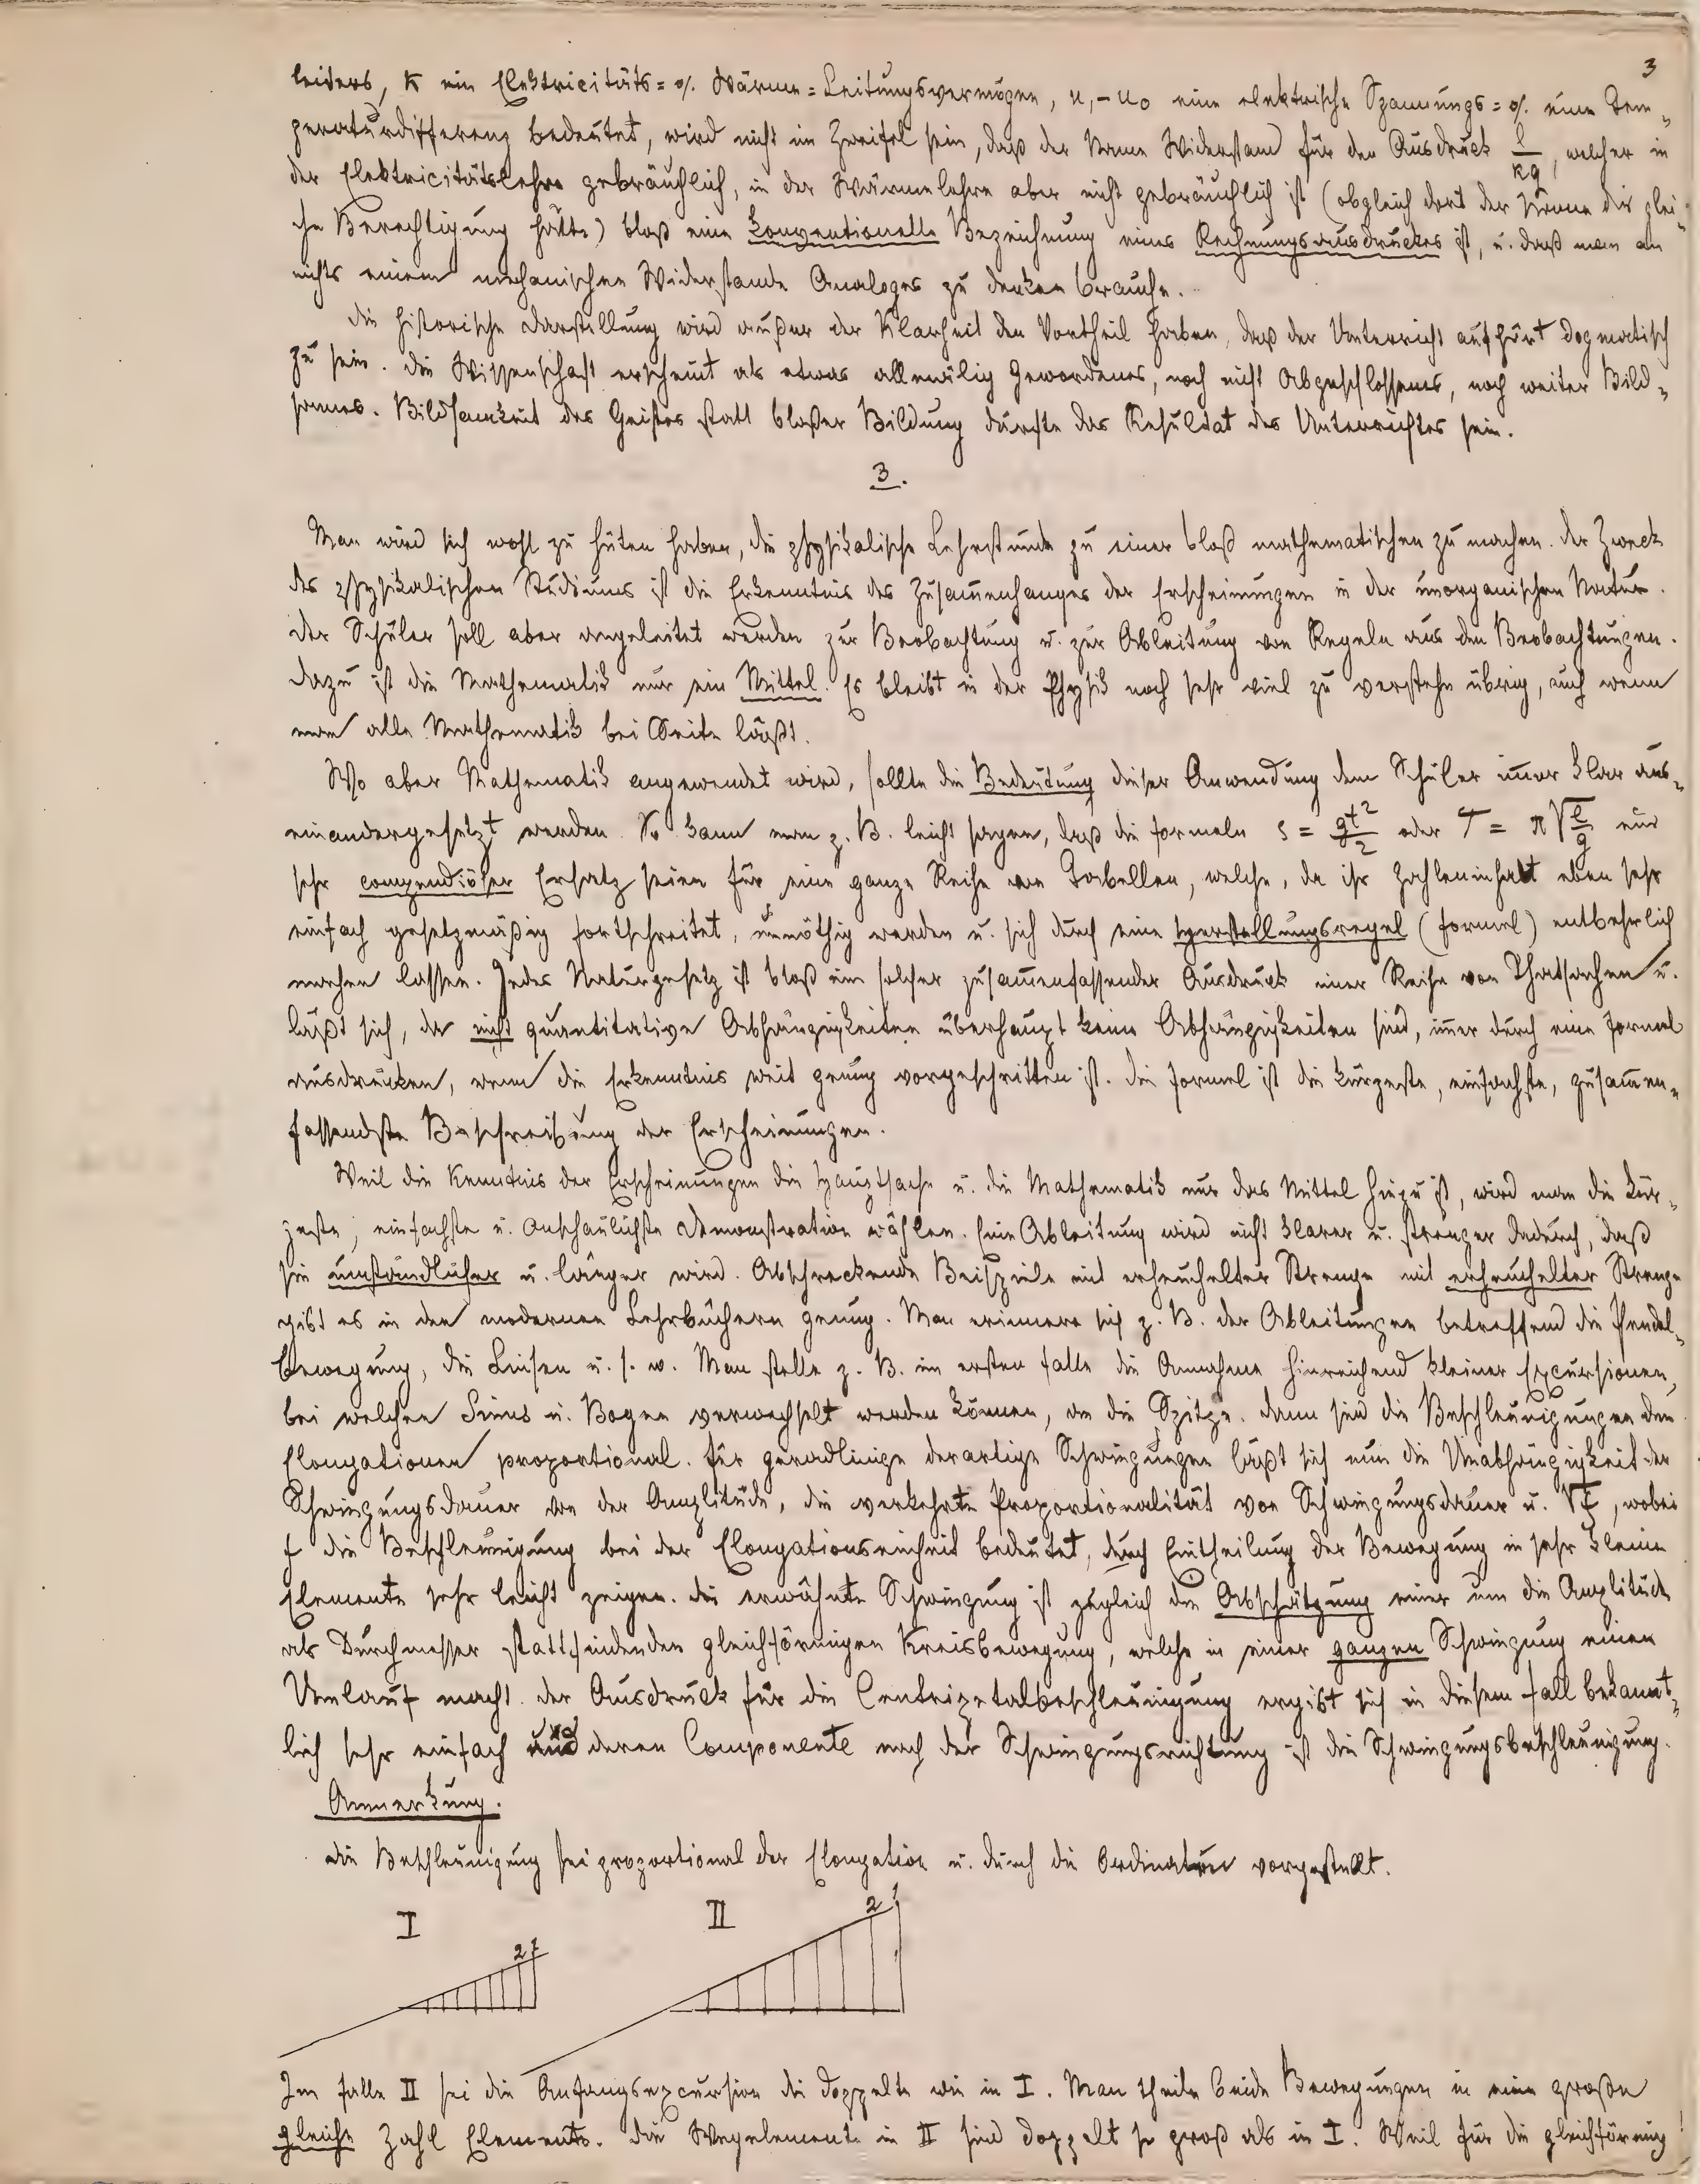 3
leiders, k ein Elektricitäts= o/. Wärme=Leitungsvermögen, u, – u₀ eine elektrische Spannungs= o/. eine Tem„
peraturdifferenz bedeutet, wird nicht im Zweifel sein, daß der Name Widerstand für den Ausdruck l/kq, welcher in
der Elektricitätslehre gebräuchlich, in der Wärmelehre aber nicht gebräuchlich ist (obgleich dort der Name die glei„
che Berechtigung hätte) bloß eine konventionelle Bezeichnung eines Rechnungsausdruckes ist, u. daß man an
nichts einem mechanischen Widerstande Analoges zu denken brauche.
Die historische Darstellung wird außer der Klarheit den Vortheil haben, daß der Unterricht aufhört dogmatisch
zu sein. Die Wissenschaft erscheint als etwas allmälig Gewordenes, noch nicht Abgeschlossenes, noch weiter Bild„
sames. Bildsamkeit des Geistes statt bloßer Bildung dürfte das Resultat des Unterrichtes sein.
3.
Man wird sich wohl zu hüten haben, die physikalische Lehrstunde zu einer bloß mathematischen zu machen. Der Zweck
des physikalischen Studiums ist die Erkenntnis des Zusam̅enhanges der Erscheinungen in der unorganischen Natur.
Der Schüler soll aber angeleitet werden zur Beobachtung u. zur Ableitung von Regeln aus den Beobachtungen.
Dazu ist die Mathematik nur ein Mittel. Es bleibt in der Physik noch sehr viel zu verstehn übrig, auch wenn
man alle Mathematik bei Seite läßt.
Wo aber Mathematik angewendet wird, sollte die Bedeutung dieser Anwendung dem Schüler im̅er klar aus„
einandergesetzt werden. So kann man z. B. leicht sagen, daß die Formeln s = gt²/2 oder T = π√l/g nur
sehr compendiöser Ersatz seien für eine ganze Reihe von Tabellen, welche, da ihr Zahleninhalt eben sehr
einfach gesetzmäßig fortschreitet, unnöthig werden u. sich durch eine Herstellungsregel (Formel) entbehrlich
machen lassen. Jedes Naturgesetz ist bloß ein solcher zusam̅enfassender Ausdruck einer Reihe von Thatsachen u.
läßt sich, da nicht quantitative Abhängigkeiten überhaupt keine Abhängigkeiten sind, im̅er durch eine Formel
ausdrücken, wenn die Erkenntnis weit genug vorgeschritten ist. Die Formel ist die kürzeste, einfachste, zusam̅en„
fassendste Beschreibung der Erscheinungen.
Weil die Kenntnis der Erscheinungen die Hauptsache u. die Mathematik nur das Mittel hiezu ist, wird man die kür„
zeste, einfachste u. anschaulichste Demonstration wählen. Eine Ableitung wird nicht klarer u. strenger dadurch, daß
sie umständlicher u. länger wird. Abschreckende Beispiele mit erheuchelter Strenge mit erheuchelter Strenge
gibt es in den modernen Lehrbüchern genug. Man erinnere sich z. B. der Ableitungen betreffend die Pendel„
bewegung, die Linsen u. s. w. Man stelle z. B. im ersten Falle die Annahme hinreichend kleiner Excursionen,
bei welchen Sinus u. Bogen verwechselt werden können, an die Spitze. Dann sind die Beschleunigungen den
Elongationen proportional. Für geradlinige derartige Schwingungen läßt sich nun die Unabhängigkeit der
Schwingungsdauer von der Amplitüde, die verkehrte Proportionalität von Schwingungsdauer u. √f, wobei
f die Beschleunigung bei der Elongationseinheit bedeutet, durch Eintheilung der Bewegung in sehr kleine
Elemente sehr leicht zeigen. Die erwähnte Schwingung ist zugleich die Abschätzung einer um die Amplitüde
als Durchmesser stattfindenden gleichförmigen Kreisbewegung, welche in einer ganzen Schwingung einen
Umlauf macht. Der Ausdruck für die Centripetalbeschleunigung ergibt sich in diesem Fall bekannt„
lich sehr einfach und deren Componente nach der Schwingungsrichtung ist die Schwingungsbeschleunigung.
Anmerkung.
Die Beschleunigung sei proportional der Elongation u. durch die Ordinaten vorgestellt.
I II
2 1 2 1
Im Falle II sei die Anfangsexcursion die doppelte wie in I. Man theile beide Bewegungen in eine große
gleiche Zahl Elemente. Die Wegelemente in II sind doppelt so groß als in I. Weil für die gleichförmig